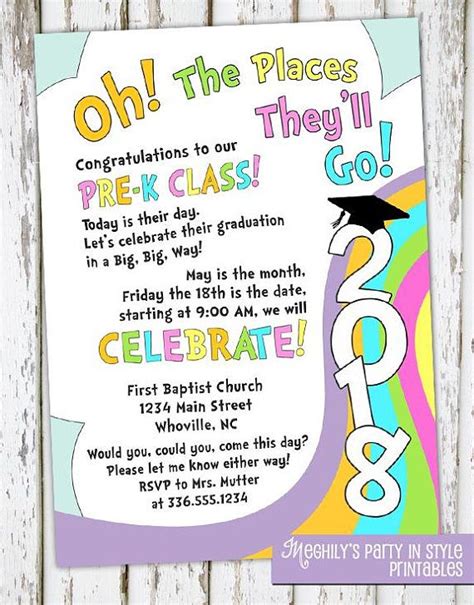 Oh! The Places
They'll
Go!
Congratulations to our
PRE-K CLASS!
Today is their day.
Let's celebrate their graduation
in a Big, Big, Way!
May is the month,
Friday the 18th is the date,
starting at 9:00 AM, we will
CELEBRATE!
First Baptist Church
1234 Main Street
Whoville, NC
Would you, could you, come this day?
Please let me know either way!
RSVP to Mrs. Mutter
at 336.555.1234
2018
MEGHILY'S PARTY IN STYLE
PRINTABLES